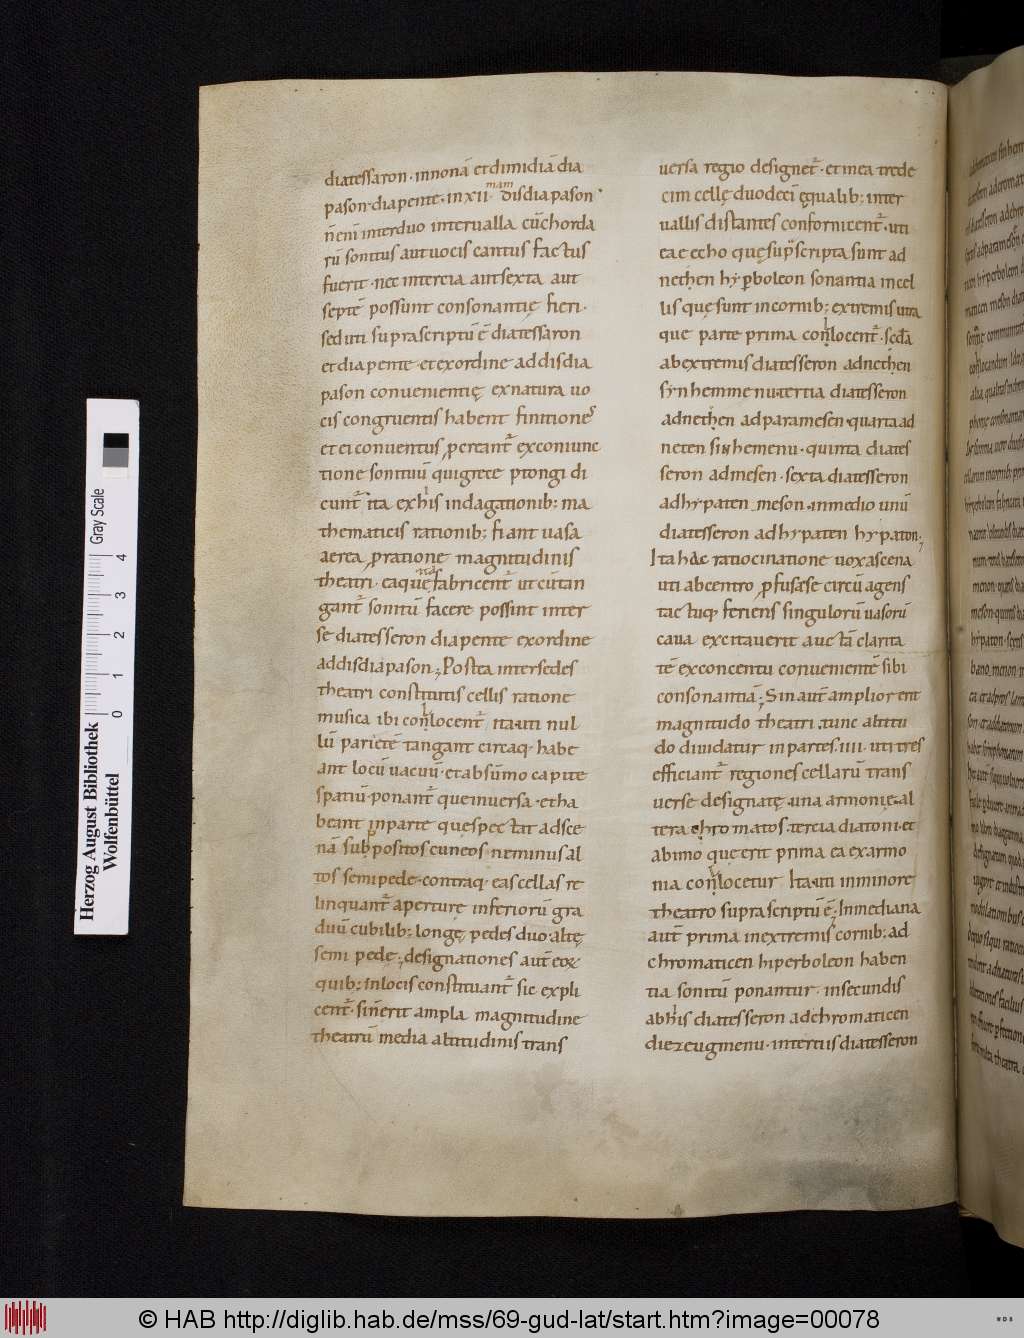 diatessaron · innonā etdimidiā dia
pason · diapente · in xii · mam disdiapason ·
n̄ enī interduo interualla cū chorda
rū sonitus aut uocis cantus factus
fuerit · nec intercia aut sexta aut
septē possunt consonantię fieri ·
sed uti suprascriptū ē diatessaron
et diapente · et exordine ad disdia
pason conuenientię ex natura uo
cis congruentis habent finitiones
et ei conuentus pcreant̄ exconiunc
tione sonituū qui grece ptongi di
cunt̄ ita ex his indagationib; ma
thematicis rationib; fiant uasa
aerea pratione magnitudinis
theatri · eaq; ita fabricent̄ ut cū tan
gant̄ sonitū facere possint inter
se diatesseron diapente exordine
ad disdiapason ; Postea inter sedes
theatri constitutis cellis ratione
musica ibi conlocent̄ ita uti nul
lū parietē tangant circaq; habe
ant locū uacuū · et absūmo capite
spatiū · ponant̄ que inuersa · et ha
beant in parte que spectat ad sce
nā suppositos cuneos ne minus al
tos semipede · contraq; eas cellas re
linquant̄ aperturę inferiorū gra
duū cubilib; longę pedes duo · altę
semi pede ; designationes aut̄ eoꝝ
quib; in locis constituant̄ sic expli
cent̄ · sin̄erit ampla magnitudine
theatrū media altitudinis trans
uersa regio designet̄ · et in ea trede
cim cellę duodeci ęqualib; inter
uallis distantes confornicent̄ · uti
eae echo quę sup̄scripta sunt ad
nethen hyperboleon sonantia in cel
lis quę sunt in cornib; extremis utra
que parte prima conlocent̄ · scda
ab extremis diatesseron ad nethen
synhemmenu · tertia diatesseron
ad nethen ad paramesen · quarta ad
neten sinhemenu · quinta diates
seron ad mesen · sexta diatesseron
ad hypaten meson · in medio unū
diatesseron ad hypaten hypaton ;
Ita hac ratiocinatione uox a scena
uti ab centro pfusa se circū agens
tactuq; feriens singulorū uasorū
caua excitauerit auctā clarita
tē ex concentu conuenientē sibi
consonantiā ; Sin aut̄ amplior erit
magnitudo theatri · tunc altitu
do diuidatur in partes · iiii · uti tres
efficiant̄ regiones cellarū trans
uerse designatę · una armonię · al
tera chromatos · tercia diatoni · et
ab imo que erit prima ea ex armo
nia conlocetur Ita uti in minore
theatro suprascriptū ē ; In mediana
aut̄ prima in extremis cornib; ad
chromaticen hiperboleon haben
tia sonitū ponantur · in secundis
ab his diatesseron ad chromaticen
diezeugmenu · in tertiis diatesseron
Herzog August Bibliothek
Wolfenbüttel
Gray Scale
0 1 2 3 4
© HAB http://diglib.hab.de/mss/69-gud-lat/start.htm?image=00078